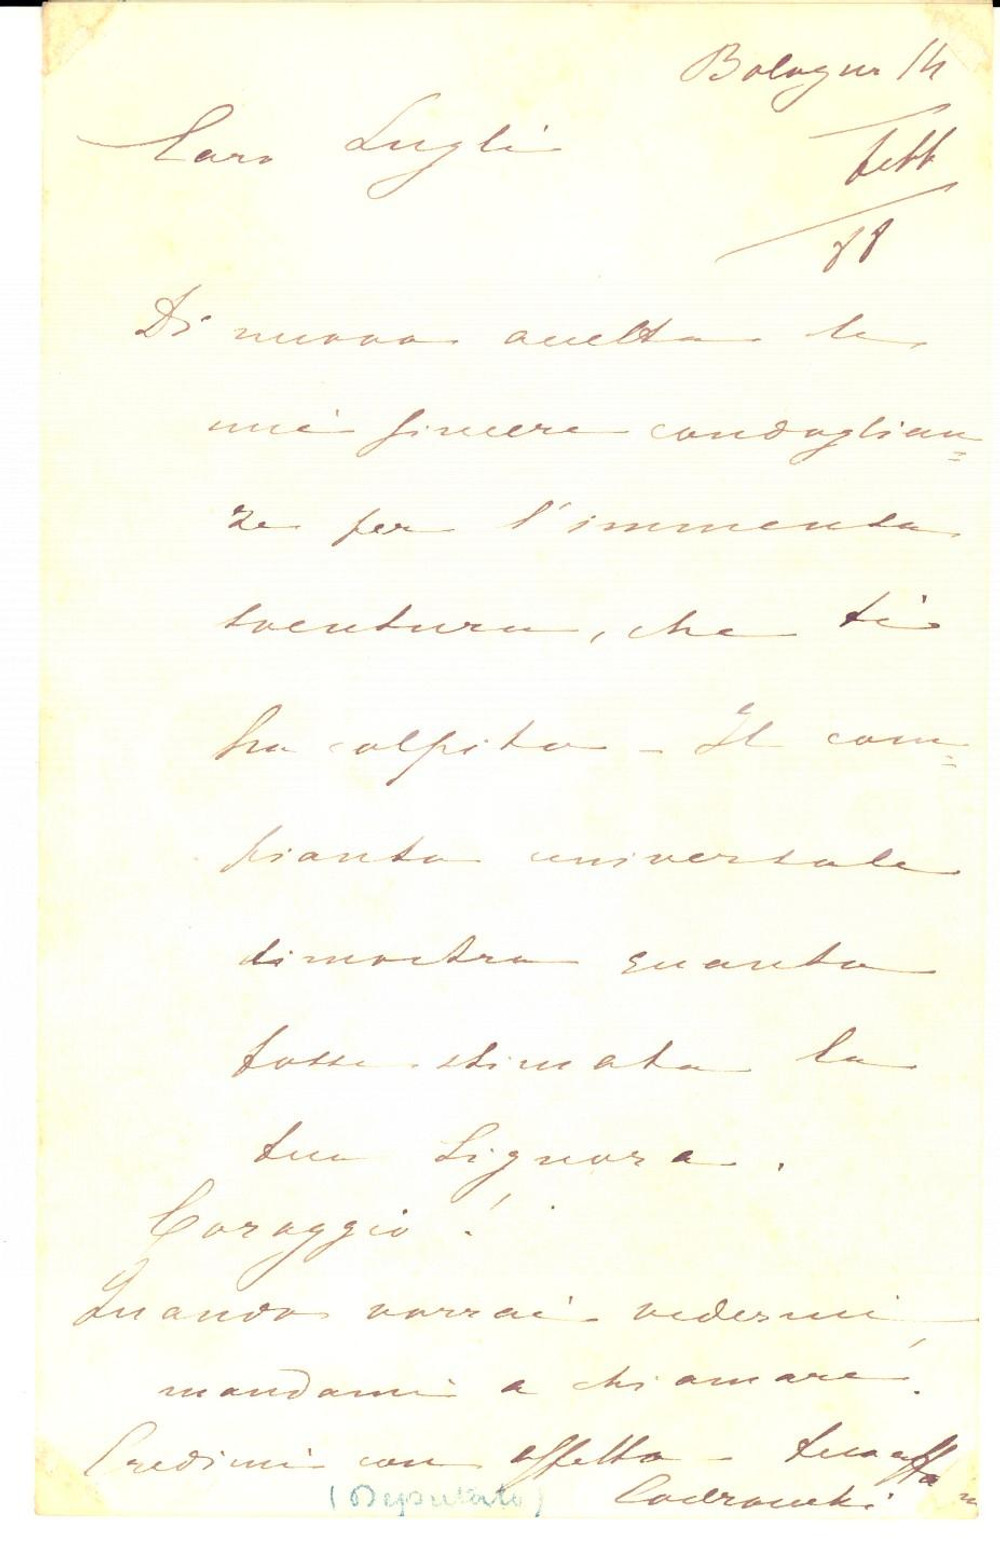 Bologna 14
febb
88
Caro Lugli
Di nuovo accetta le
mie sincere condoglian=
ze per l'immensa
sventura, che ti
ha colpito – Il com=
pianto universale
dimostra quanto
fosse stimata la
tua Signora.
Coraggio!
Quando vorrai vedermi
mandami a chiamare!
Credimi con affetto – tuo aff
Codronchi
(Deputato)